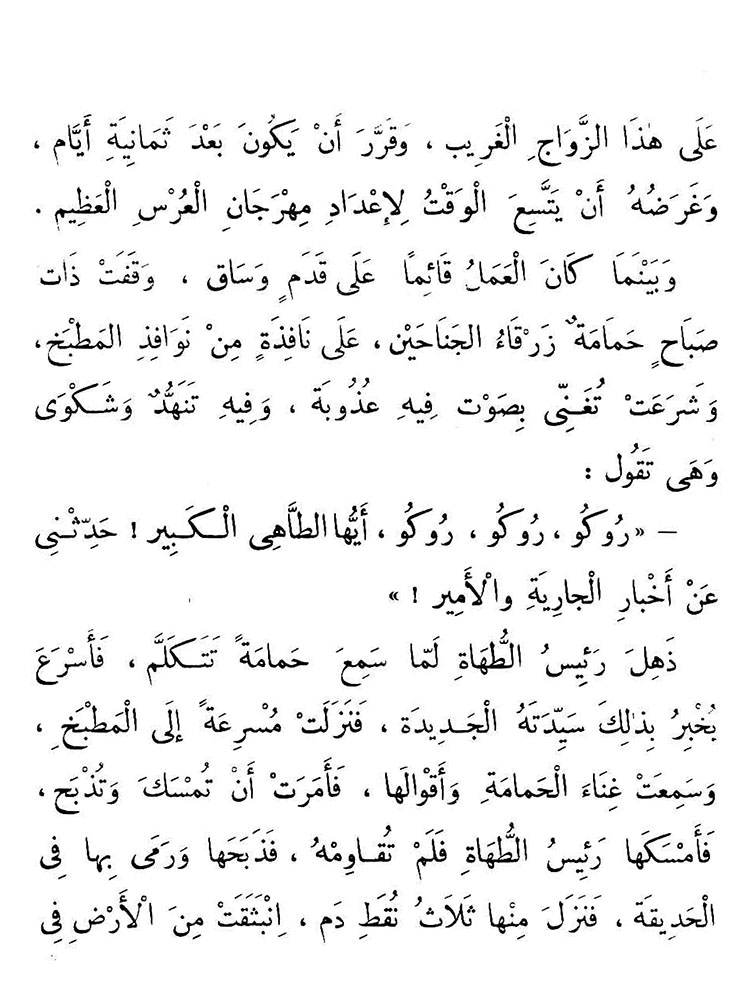 عَلَى هٰذَا الزَّوَاجِ الْغَرِيبِ ، وَقَرَّرَ أَنْ يَكُونَ بَعْدَ ثَمَانِيَةِ أَيَّام ،
وَغَرَضُهُ أَنْ يَتَّسِعَ الْوَقْتُ لِإِعْدَادِ مِهْرَجَانِ الْعُرْسِ الْعَظِيم .
وَبَيْنَمَا كَانَ الْعَمَلُ قَائِمًا عَلَى قَدَمٍ وَسَاق ، وَقَفَتْ ذَات
صَبَاحٍ حَمَامَةٌ زَرْقَاءُ الجَنَاحَيْن ، عَلَى نَافِذَةٍ مِنْ نَوَافِذِ المَطْبَخ ،
وَشَرَعَتْ تُغَنِّى بِصَوْت فِيهِ عُذُوبَة ، وَفِيهِ تَنَهُّدٌ وَشَكْوَى
وَهَى تَقُول :
– «رُوكُو ، رُوكُو ، رُوكُو ، أَيُّها الطَّاهِى الْكَبِير ! حَدِّثْنِى
عَنْ أَخْبارِ الْجارِيَةِ والْأَمِير ! »
ذَهِلَ رَئِيسُ الطُّهَاةِ لَمّا سَمِعَ حَمامَةً تَتَكَلَّم ، فَأَسْرَعَ
يُخْبِرُ بِذٰلِكَ سَيِّدَتَهُ الْجَدِيدَة ، فَنَزَلَتْ مُسْرِعَةً إِلَى الْمَطْبَخِ ،
وَسَمِعَتْ غِنَاءَ الْحَمامَةِ وَأَقْوالَها ، فَأَمَرَتْ أَنْ تُمْسَكَ وَتُذْبَح ،
فَأَمْسَكَها رَئِيسُ الطُّهَاةِ فَلَمْ تُقاوِمْهُ ، فَذَبَحَها وَرَمَى بِها فِى
الْحَدِيقَة ، فَنَزَلَ مِنْها ثَلَاثُ نُقَطِ دَم ، اِنْبَثَقَتْ مِنَ الْأَرْضِ فِى